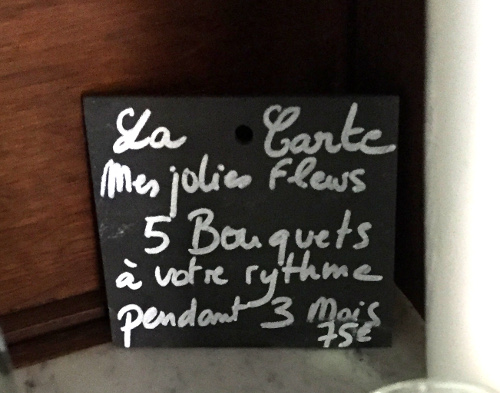 La Carte
Mes jolies fleurs
5 Bouquets
à votre rythme
pendant 3 Mois
75€